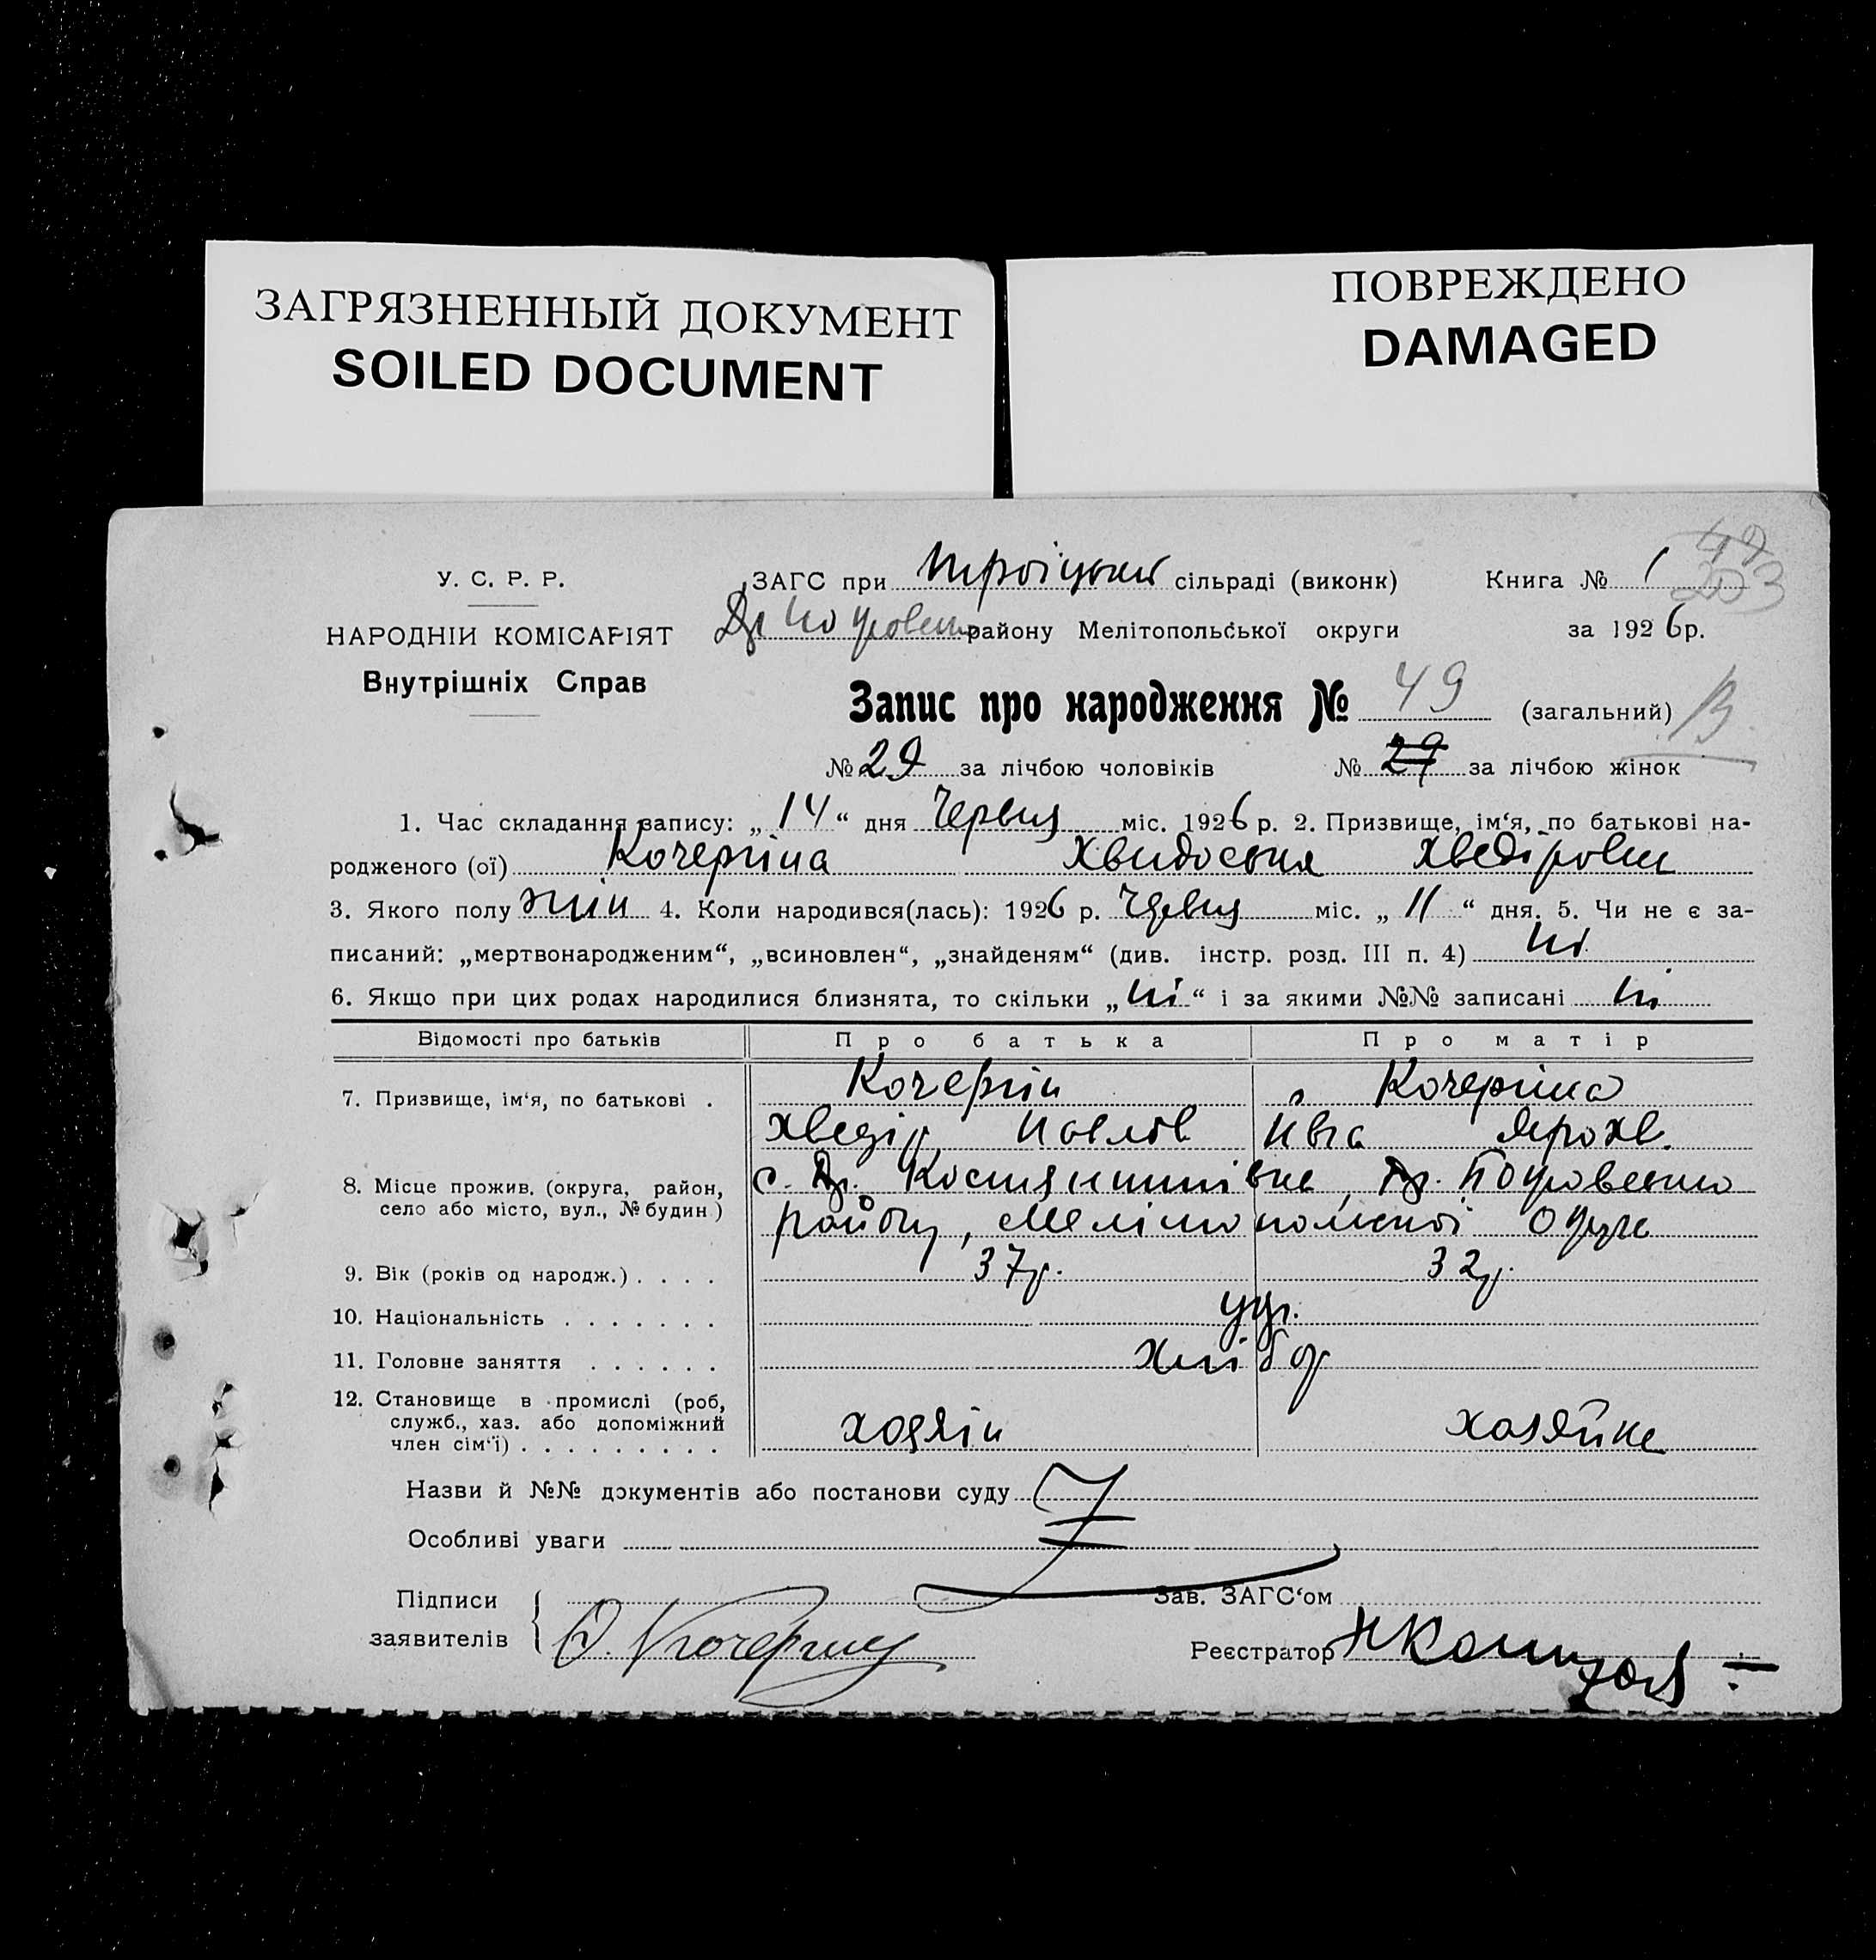 ЗАГРЯЗНЕННЫЙ ДОКУМЕНТ
SOILED DOCUMENT
ПОВРЕЖДЕНО
DAMAGED
У. С. Р. Р.
НАРОДНІИ КОМІСАРІЯТ
Внутрішніх Справ
ЗАГС при Троіцькій сільраді (виконк)
району Мелітопольської округи
Книга № 1
за 1926 р.
Запис про народження № 49 (загальний)
№ 29 за лічбою чоловіків № 29 за лічбою жінок
1. Час складання запису: „14“ дня Червця міс. 1926 р. 2. Призвище, ім‘я, по батькові на-
родженого (ої) Кочергіна Хвидоська Хведіровн
3. Якого полу жін 4. Коли народився(лась): 1926 р. Червця міс. „11“ дня. 5. Чи не є за-
писаний: „мертвонародженим“, „всиновлен“, „знайденям“ (див. інстр. розд. III п. 4) ні
6. Якщо при цих родах народилися близнята, то скільки „ні“ і за якими №№ записані ні
Відомості про батьків Про батька Про матір
7. Призвище, ім‘я, по батькові . Кочергін Кочергіна
Хведір Павлов Ивга Ярохв.
8. Місце прожив. (округа, район, с. Костянтинівка, Покровського
село або місто, вул., № будин) району, Мелітопольскої округи
9. Вік (років од народж.) . . . . 37р. 32р.
10. Національність . . . . . . . укр.
11. Головне заняття . . . . . . хлібор
12. Становище в промислі (роб,
служб., хаз. або допоміжний
член сім‘ї) . . . . . . . . . хозяін хозяйка
Назви й №№ документів або постанови суду
Особливі уваги
Підписи
заявителів
Кочергин
Зав. ЗАГС‘ом
Реєстратор